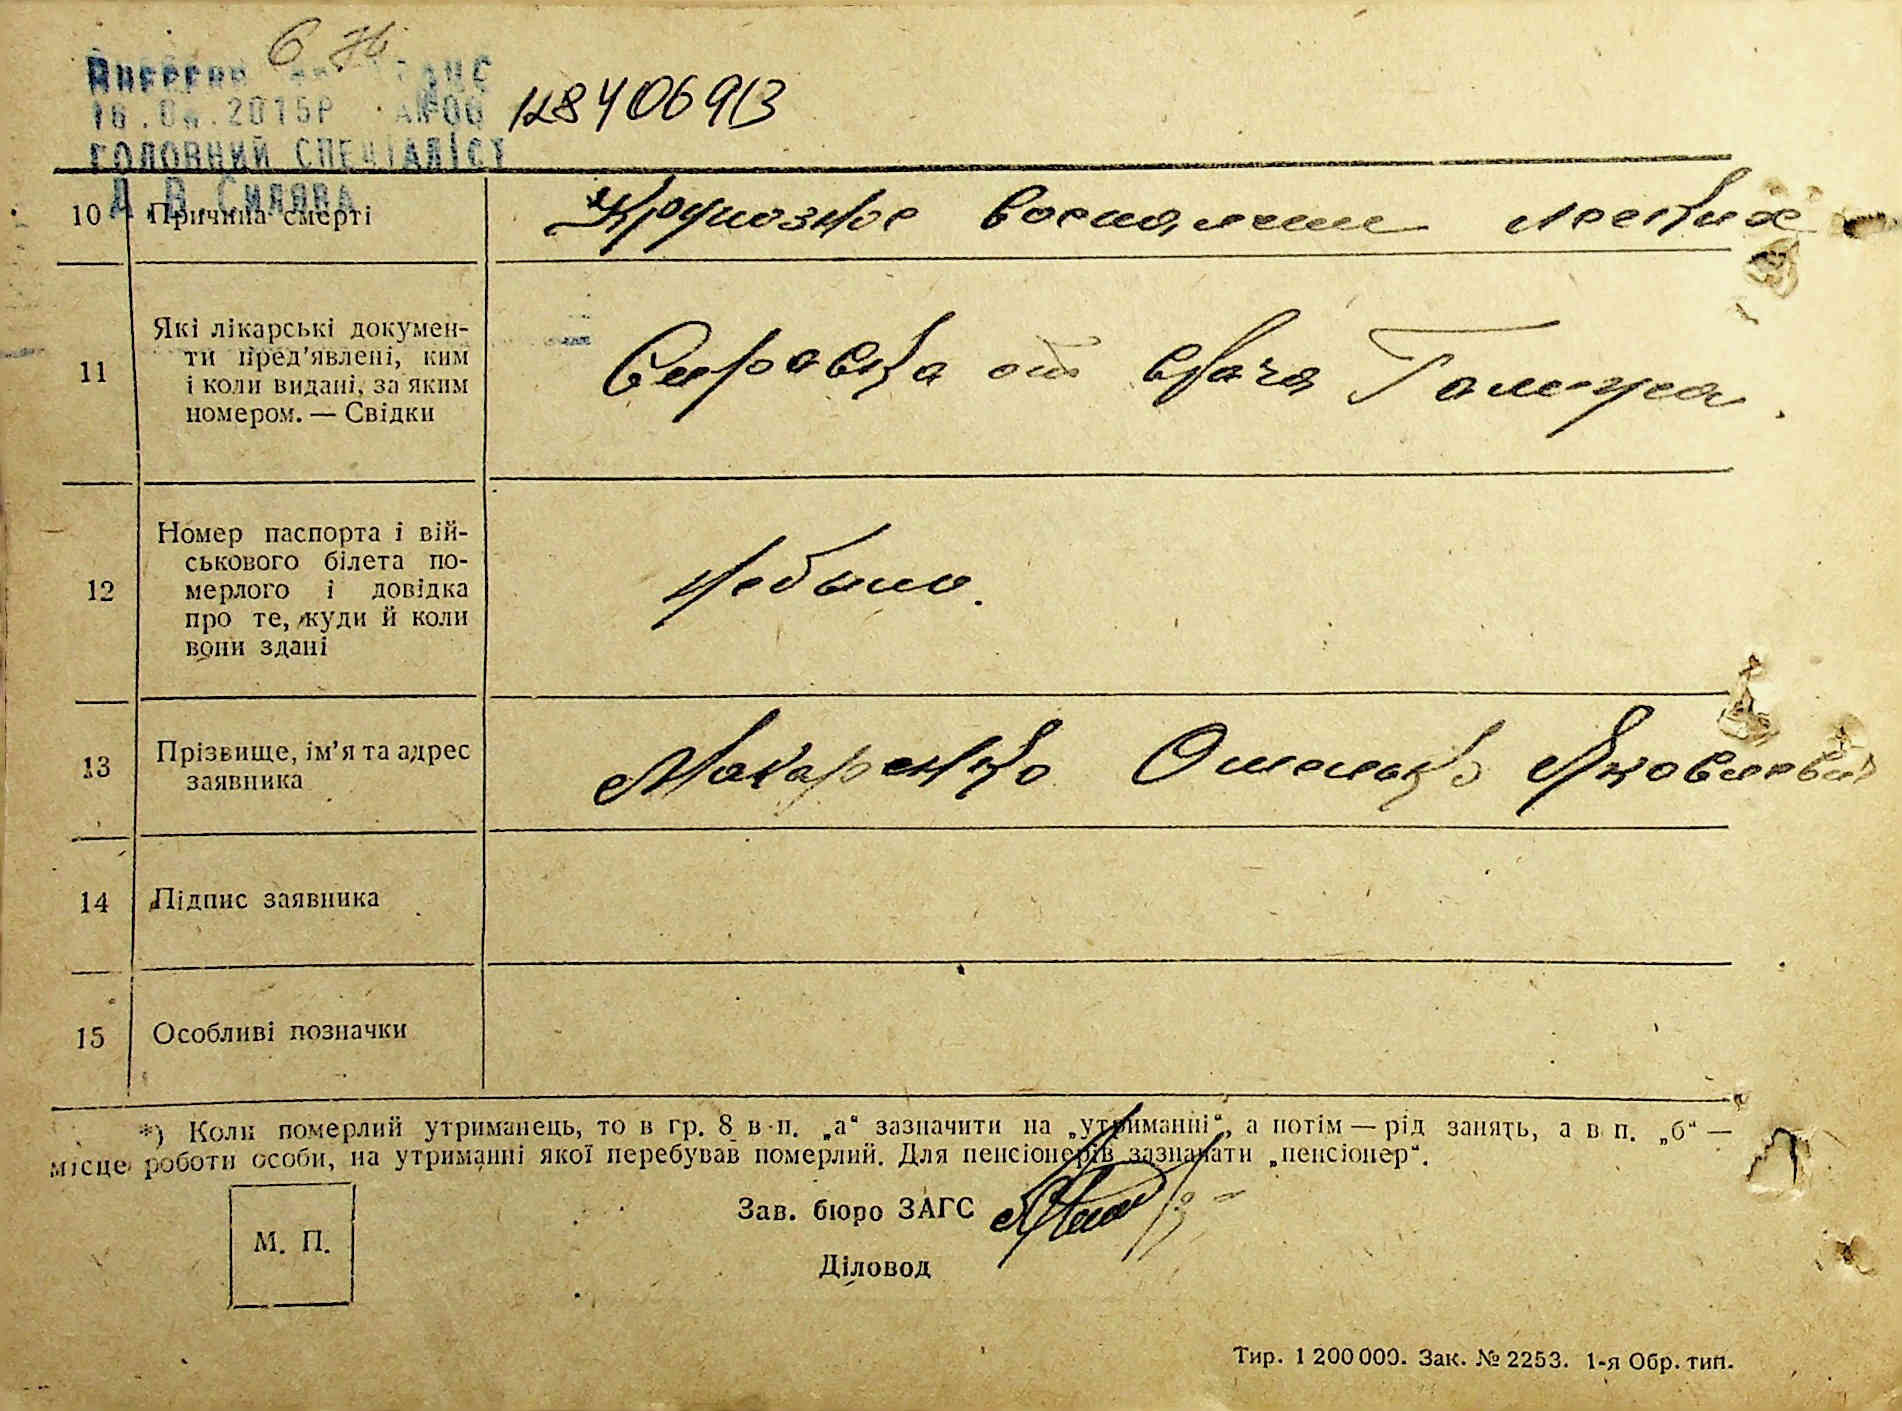 16.0 .2015Р
ГОЛОВНИЙ СПЕЦІАЛІСТ
10 Причина смерті Крупозное воспаление легких
11 Які лікарські докумен-
ти пред’явлені, ким
і коли видані, за яким
номером. — Свідки
Справка от врача
12 Номер паспорта і вій-
ськового білета по-
мерлого і довідка
про те, куди й коли
вони здані
Небыло.
13 Прізвище, ім’я та адрес
заявника
Макаренко Омелько Яковлевич
14 Підпис заявника
15 Особливі позначки
*) Коли померлий утриманець, то в гр. 8 в п. „а“ зазначити на „утриманні“, а потім — рід занять, а в п. „б“ —
місце роботи особи, на утриманні якої перебував померлий. Для пенсіонерів зазначати „пенсіонер“.
Зав. бюро ЗАГС
М. П.
Діловод
Тир. 1 200 000. Зак. № 2253. 1-я Обр. тип.